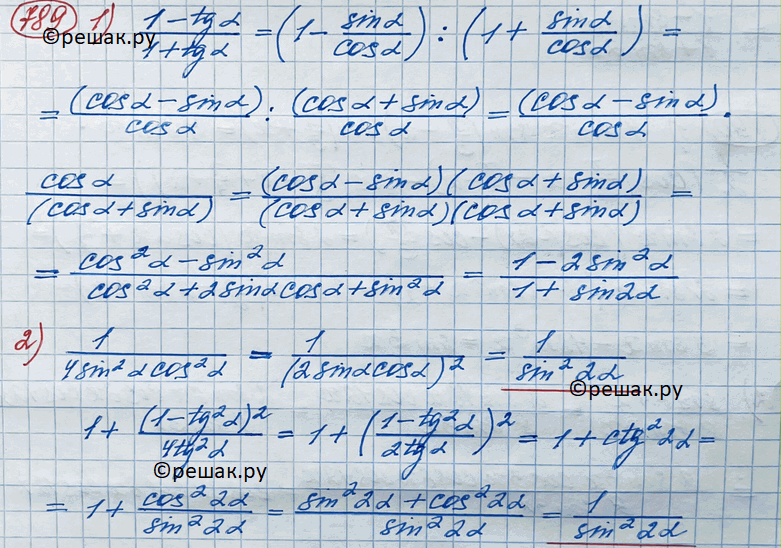 789 1) (1-tgα)/(1+tgα) = (1 - sinα/cosα) : (1 + sinα/cosα) =
©решак.ру
= (cosα - sinα)/cosα : (cosα + sinα)/cosα = (cosα - sinα)/cosα ·
cosα/(cosα + sinα) = (cosα - sinα)(cosα + sinα)/(cosα + sinα)(cosα + sinα) =
= (cos²α - sin²α)/(cos²α + 2sinαcosα + sin²α) = (1 - 2sin²α)/(1 + sin2α)
2) 1/(4sin²αcos²α) = 1/(2sinαcosα)² = 1/sin²2α
©решак.ру
1 + (1-tg²α)²/4tg²α = 1 + ((1-tg²α)/2tgα)² = 1 + ctg²2α =
©решак.ру
= 1 + cos²2α/sin²2α = (sin²2α + cos²2α)/sin²2α = 1/sin²2α